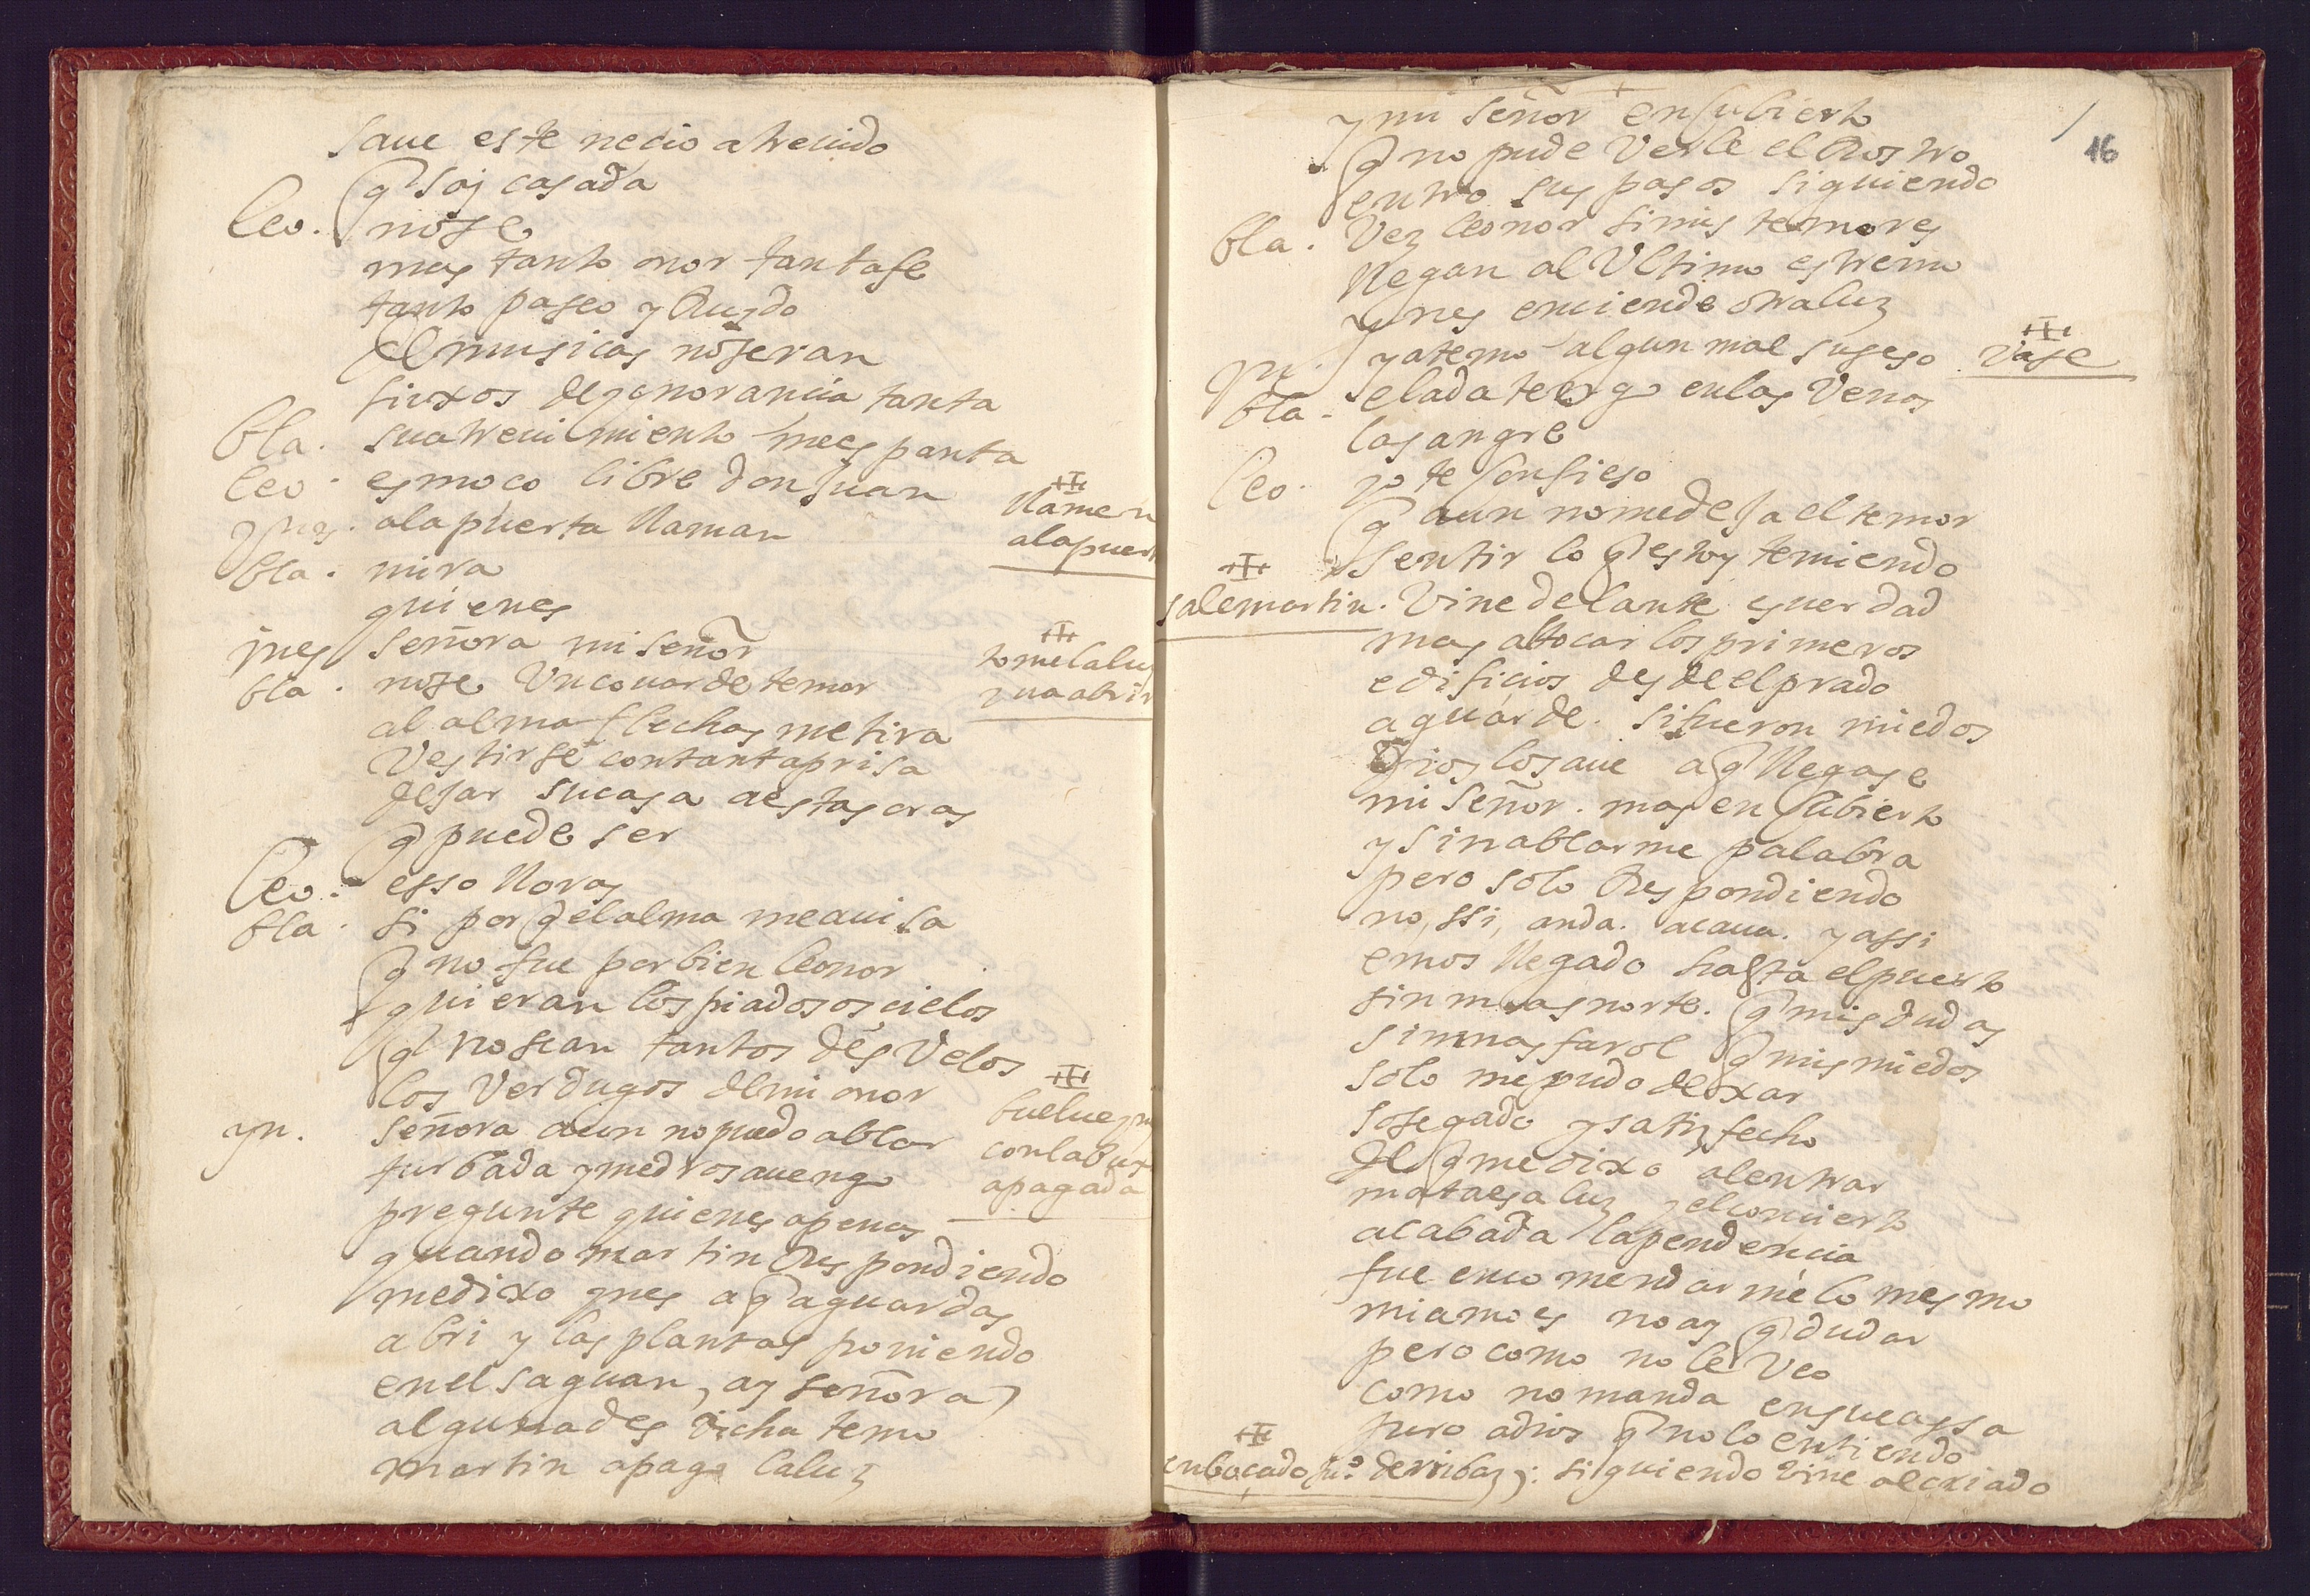 saue este necio atreuido
q̃ soy casada
leo. no se
mas tanto onor tanta fe
tanto paseo y Ruydo
de musicas no seran
hixos de ygnorancia tanta
bla. su atreuimiento me espanta
leo. es moço libre don Juan
ynes. a la puerta llaman
llamen
a la puert
bla. mira
quien es
ynes señora mi señor
tome la luz
y ua abrir
bla. no se Un couarde temor
al alma flechas me tira
Vestirse con tanta prisa
dejar su casa a estas oras
q̃ puede ser
leo. esso lloras
bla. si porq̃ el alma me auisa
q̃ no fue por bien leonor
quieran los piadosos cielos
q̃ no sean tantos desVelos
los Verdugos de mi onor
yn. señora aun no puedo ablar
buelue yn
con la bux
apagada
turbada y medrosa uengo
pregunte quien es apenas
quando martin Respondiendo
me dixo ynes a q̃ aguardas
abri y las plantas poniendo
en el saguan, ay señora)
alguna desdicha temo
martin apaga la luz
16
y mi señor encubierto
q̃ no pude Verle el Rostro
entro sus pasos siguiendo
bla. Vez leonor si mis temores
llegan al Ultimo estremo
ynes enciende otra luz
yn. ya temo algun mal suseso
vase
bla. elada tengo en las Venas
la sangre
leo. yo te confieso
q̃ aun no me deja el temor
sentir lo q̃ estoy temiendo
sale martin. Vine delante es uerdad
mas al tocar los primeros
edificios desde el prado
aguarde. si fueron miedos
Dios lo saue a q̃ llegase
mi señor. mas encubierto
y sin ablarme palabra
pero solo Respondiendo
no, ssi, anda. acaua. y assi
emos llegado hasta el puerto
sin mas norte. q̃ mis dudas
sin mas farol q̃ mis miedos
solo me pudo dexar
sosegado y satisfecho
del q̃ me dixo al entrar
mata esa luz y el concierto
acabada la pendencia
fue encomendarme lo mesmo
mi amo es no ay q̃ dudar
pero como no le Veo
como no manda en su cassa
juro a dios q̃ no lo entiendo
enbocado juº de rribas): siguiendo vine al criado